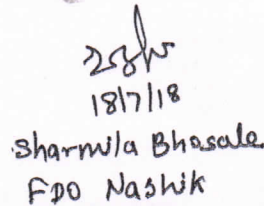 18/7/18
Sharmila Bhosale
FDO Nashik